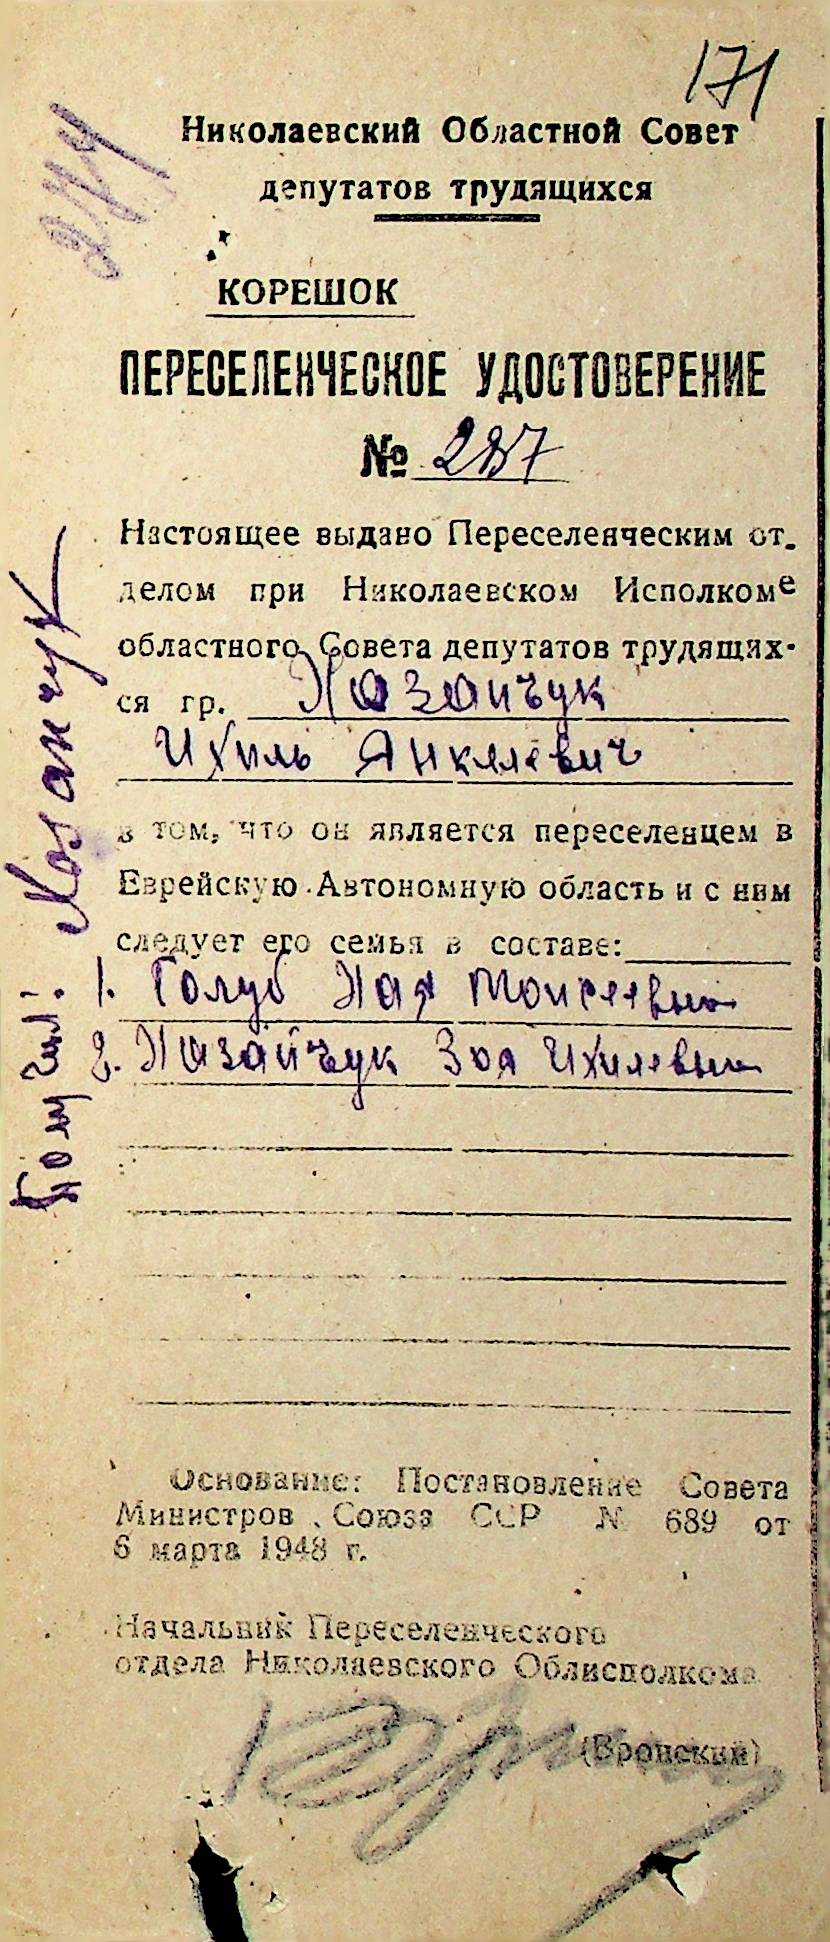 171
277
Николаевский Областной Совет
депутатов трудящихся
КОРЕШОК
ПЕРЕСЕЛЕНЧЕСКОЕ УДОСТОВЕРЕНИЕ
№ 287
Настоящее выдано Переселенческим от-
делом при Николаевском Исполкоме
областного Совета депутатов трудящих-
ся гр. Казанчук
Ихиль Янкелевич
в том, что он является переселенцем в
Еврейскую Автономную область и с ним
следует его семья в составе:
1. Голуб Хая Моисеевна
2. Казанчук Зоя Ихилевна
Основание: Постановление Совета
Министров Союза ССР № 689 от
6 марта 1948 г.
Начальник Переселенческого
отдела Николаевского Облисполкома
(Вронский)
Получил: Козанчук